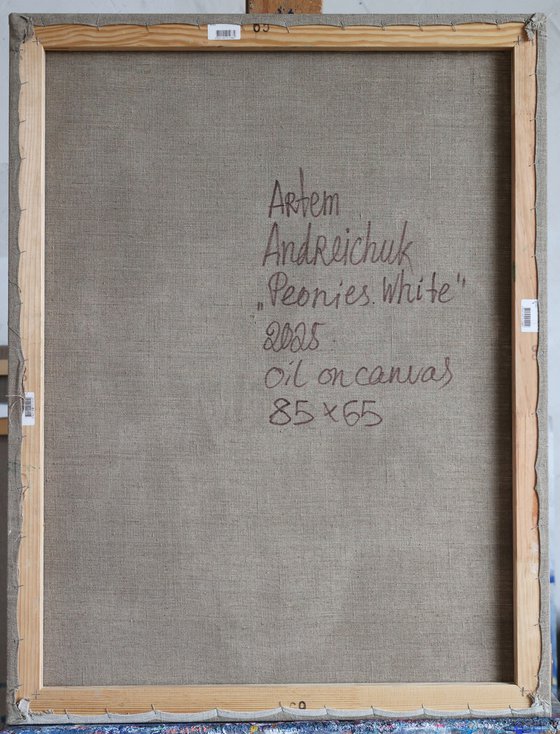 Artem
Andreichuk
„Peonies. White"
2025.
oil on canvas
85×65